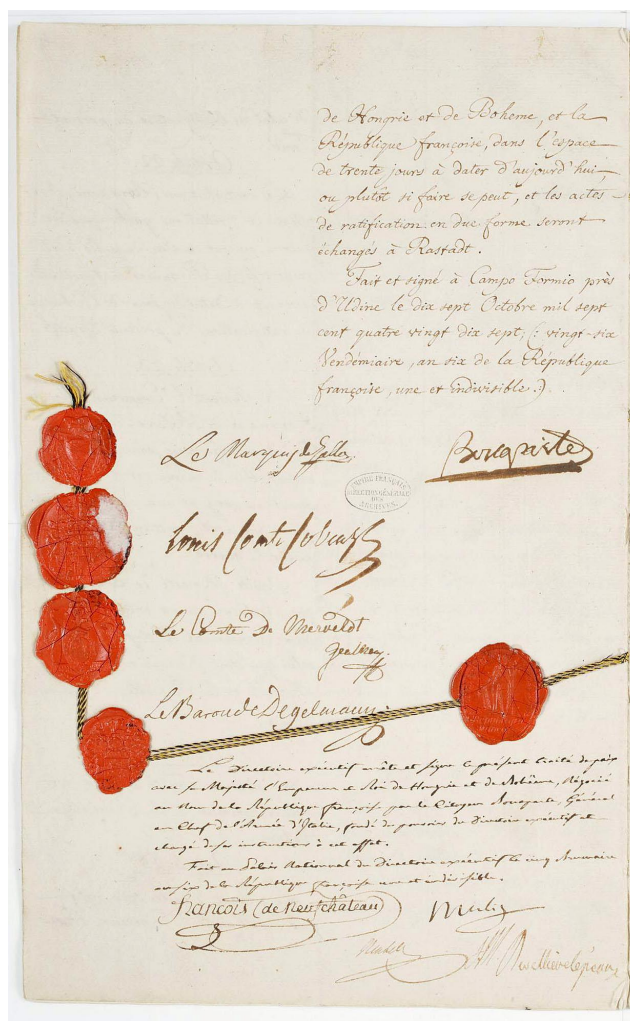 de Hongrie et de Boheme, et la
République françoise, dans l'espace
de trente jours à dater d'aujourd'hui,
ou plutôt si faire se peut, et les actes
de ratification en due forme seront
échangés à Rastadt.
Fait et signé à Campo Formio près
d'Udine le dix sept Octobre mil sept
cent quatre vingt dix sept, (: vingt-six
Vendémiaire, an six de la République
françoise, une et indivisible.)
Le Marquis de Gallo
Bonaparte
EMPIRE FRANÇAIS
DIRECTION GÉNÉRALE
DES
ARCHIVES.
Louis Comte Cobenzl
Le Comte De Merveldt
Le Baron de Degelmann
Le Directoire exécutif arrête et signe le présent traité de paix
avec sa Majesté l'Empereur et Roi de Hongrie et de Bohême, négocié
au Nom de la République françoise par le Citoyen Bonaparte, Général
en Chef de l'Armée d'Italie, fondé de pouvoirs du Directoire exécutif et
chargé de ses instructions à cet effet.
Fait au Palais National du Directoire exécutif le cinq Brumaire
an six de la République françoise une et indivisible.
François (de Neufchâteau)
Merlin